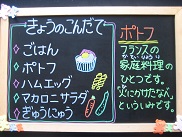 きょうのこんだて
ごはん
ポトフ
ハムエッグ
マカロニサラダ
ぎゅうにゅう
ポトフ
フランスの
家庭料理の
ひとつです。
"火にかけたなべ"
といういみです。